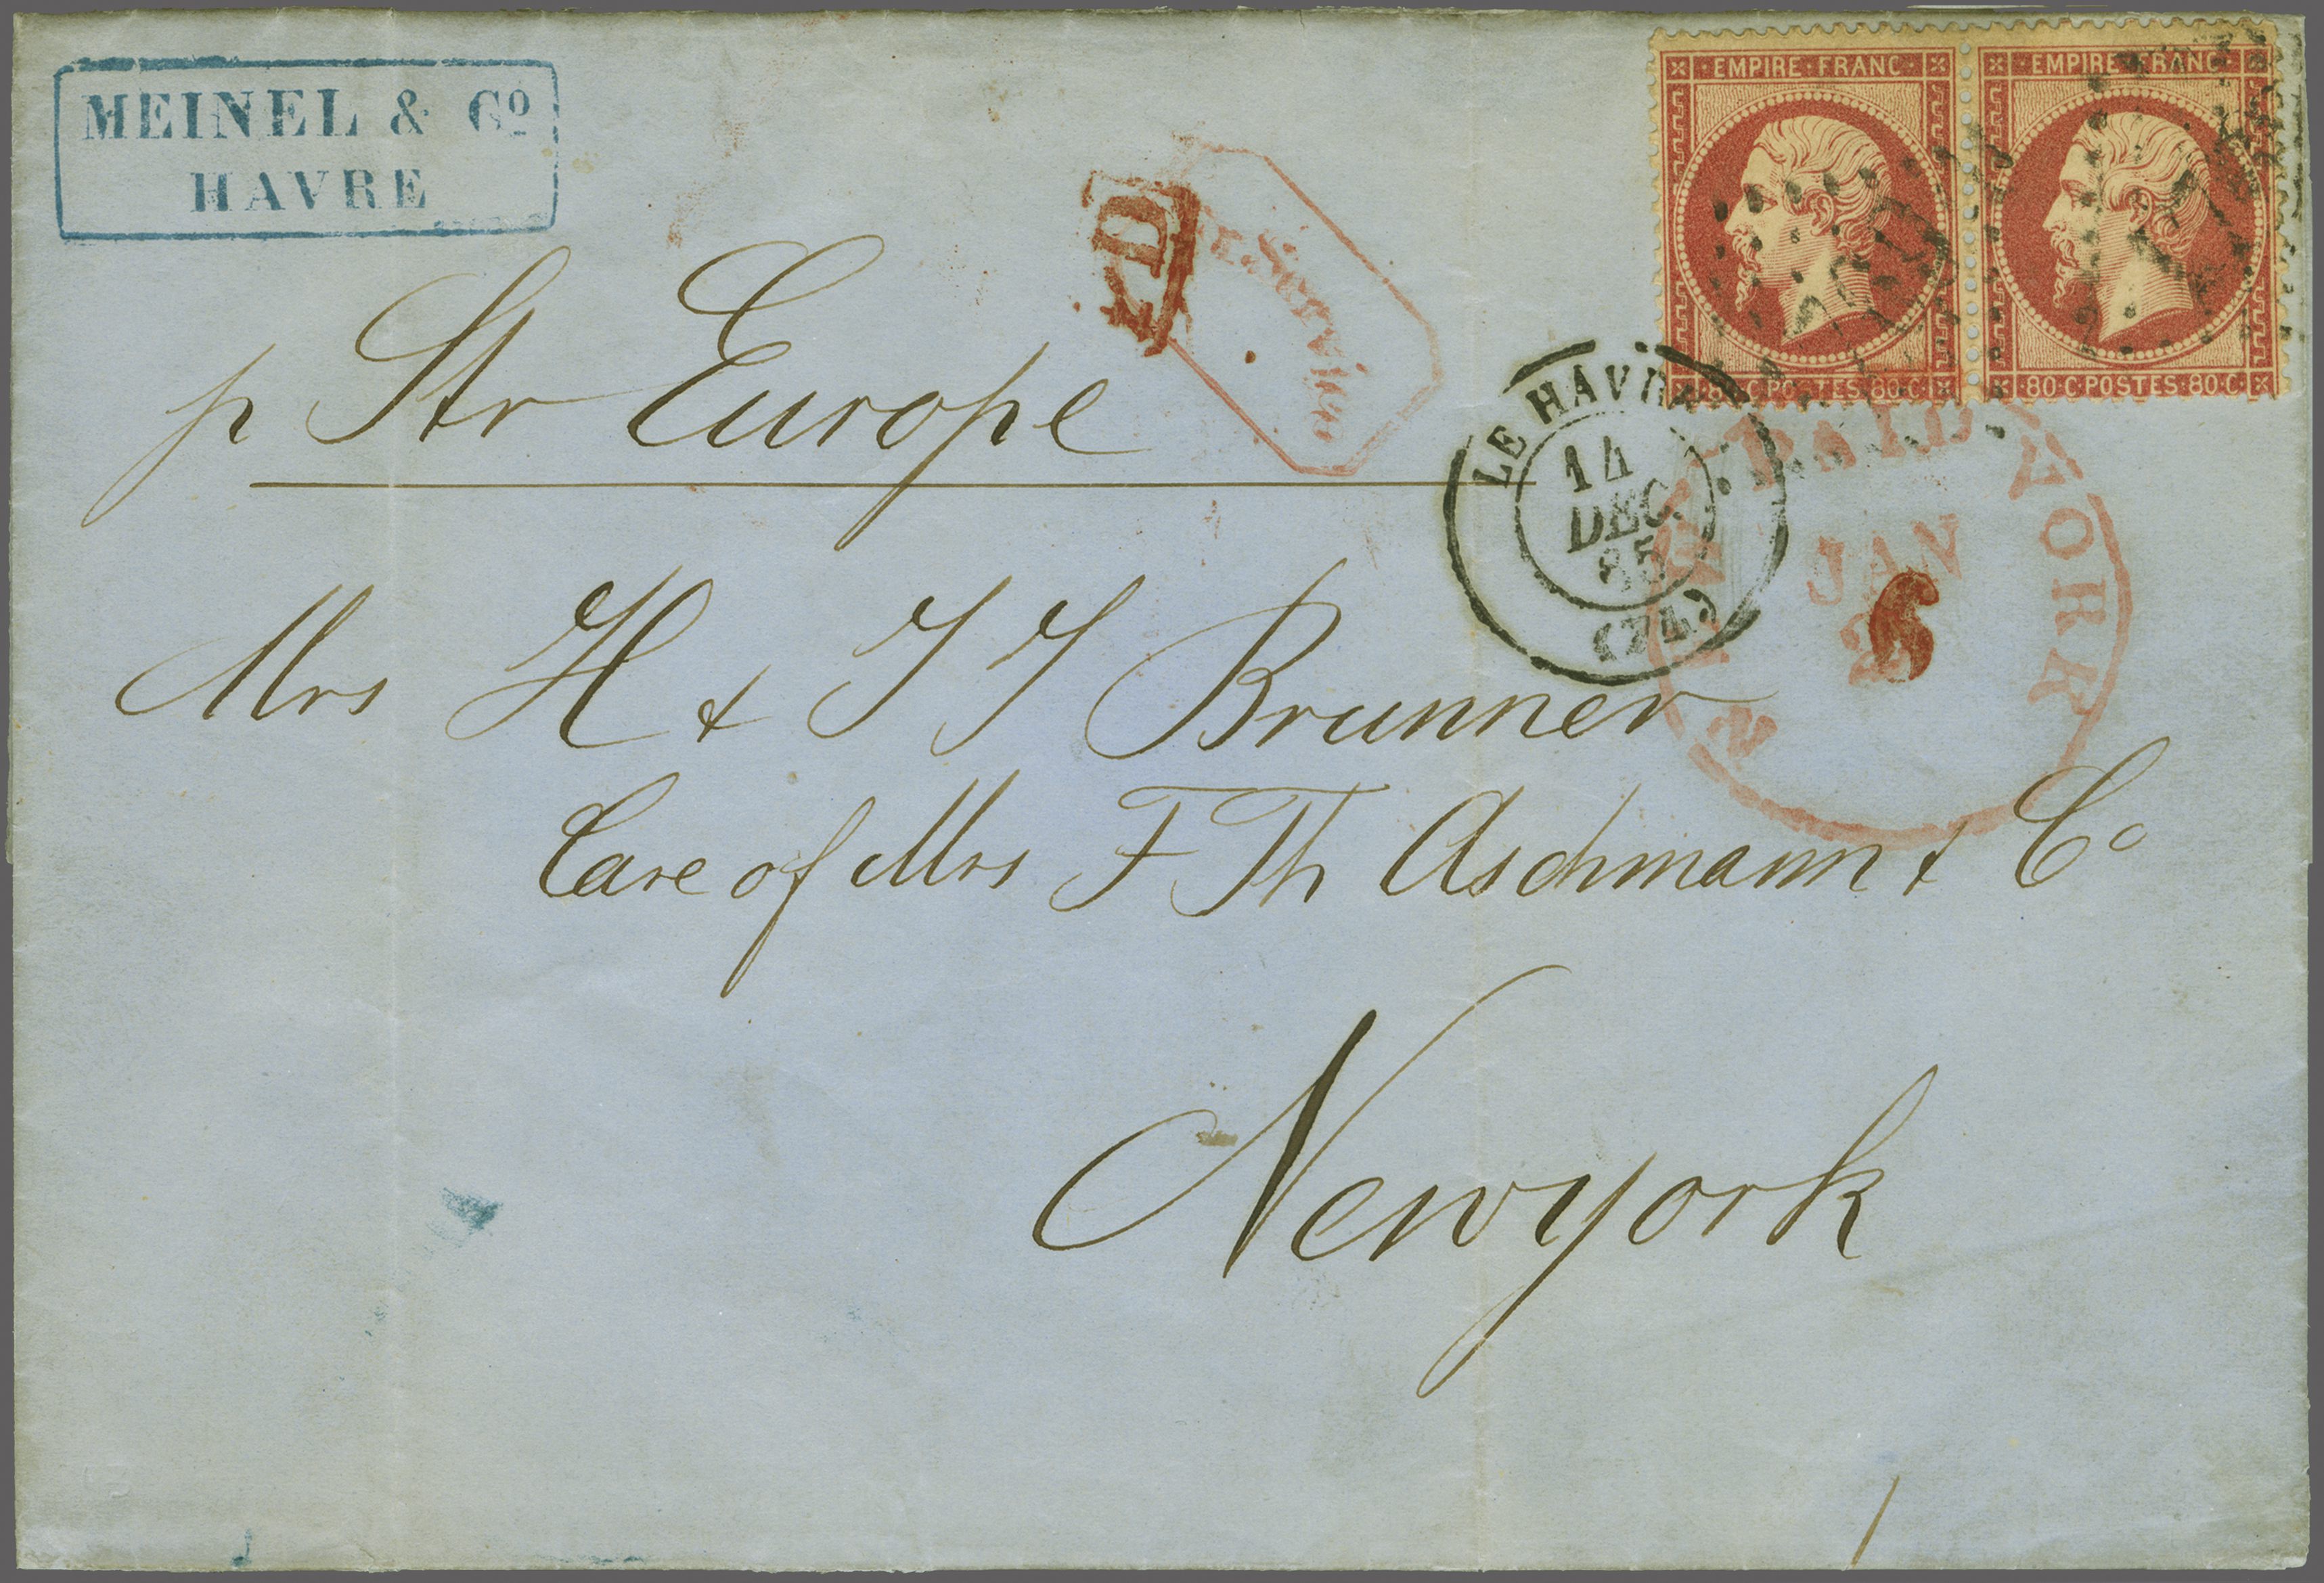 MEINEL & Cº
HAVRE
EMPIRE·FRANC·
80·C·POSTES·80·C·
EMPIRE·FRANC·
80·C·POSTES·80·C·
Service
LE HAVRE
14
DEC.
65
(74)
PAID
NEW YORK
JAN
6
p Str Europe
Mrs H & J J Brunner
Care of Mrs F Th Aschmann & Co
Newyork